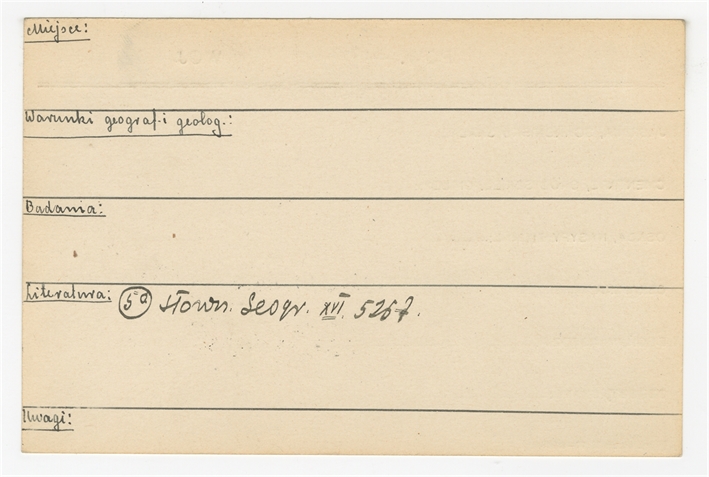 Miejsce:
Warunki geograf. i geolog.:
Badania:
Literatura: 5a Słown. Geogr. XVI. 526
Uwagi: